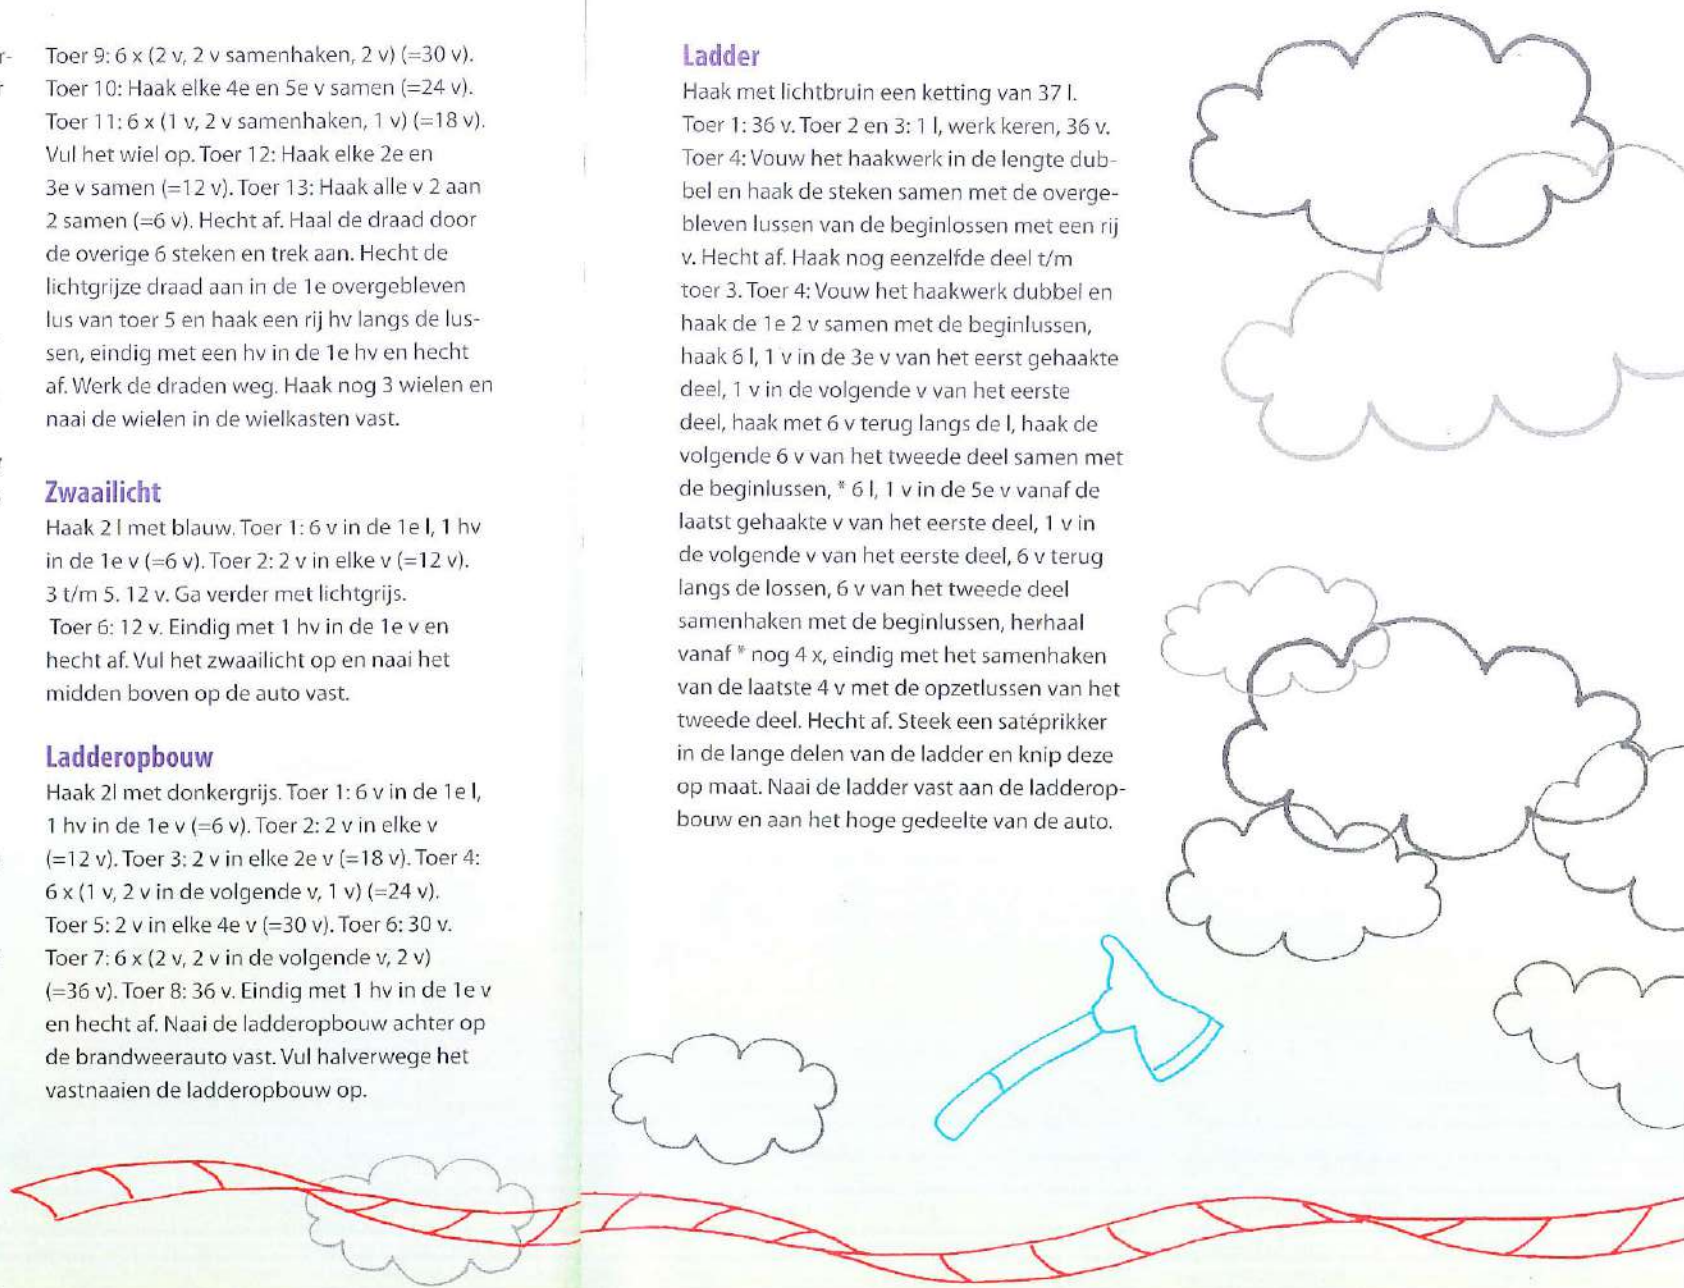 Toer 9: 6 x (2 v, 2 v samenhaken, 2 v) (=30 v).
Toer 10: Haak elke 4e en 5e v samen (=24 v).
Toer 11: 6 x (1 v, 2 v samenhaken, 1 v) (=18 v).
Vul het wiel op. Toer 12: Haak elke 2e en
3e v samen (=12 v). Toer 13: Haak alle v 2 aan
2 samen (=6 v). Hecht af. Haal de draad door
de overige 6 steken en trek aan. Hecht de
lichtgrijze draad aan in de 1e overgebleven
lus van toer 5 en haak een rij hv langs de lus-
sen, eindig met een hv in de 1e hv en hecht
af. Werk de draden weg. Haak nog 3 wielen en
naai de wielen in de wielkasten vast.
Zwaailicht
Haak 2 l met blauw. Toer 1: 6 v in de 1e l, 1 hv
in de 1e v (=6 v). Toer 2: 2 v in elke v (=12 v).
3 t/m 5. 12 v. Ga verder met lichtgrijs.
Toer 6: 12 v. Eindig met 1 hv in de 1e v en
hecht af. Vul het zwaailicht op en naai het
midden boven op de auto vast.
Ladderopbouw
Haak 2l met donkergrijs. Toer 1: 6 v in de 1e l,
1 hv in de 1e v (=6 v). Toer 2: 2 v in elke v
(=12 v). Toer 3: 2 v in elke 2e v (=18 v). Toer 4:
6 x (1 v, 2 v in de volgende v, 1 v) (=24 v).
Toer 5: 2 v in elke 4e v (=30 v). Toer 6: 30 v.
Toer 7: 6 x (2 v, 2 v in de volgende v, 2 v)
(=36 v). Toer 8: 36 v. Eindig met 1 hv in de 1e v
en hecht af. Naai de ladderopbouw achter op
de brandweerauto vast. Vul halverwege het
vastnaaien de ladderopbouw op.
Ladder
Haak met lichtbruin een ketting van 37 l.
Toer 1: 36 v. Toer 2 en 3: 1 l, werk keren, 36 v.
Toer 4: Vouw het haakwerk in de lengte dub-
bel en haak de steken samen met de overge-
bleven lussen van de beginlossen met een rij
v. Hecht af. Haak nog eenzelfde deel t/m
toer 3. Toer 4: Vouw het haakwerk dubbel en
haak de 1e 2 v samen met de beginlussen,
haak 6 l, 1 v in de 3e v van het eerst gehaakte
deel, 1 v in de volgende v van het eerste
deel, haak met 6 v terug langs de l, haak de
volgende 6 v van het tweede deel samen met
de beginlussen, * 6 l, 1 v in de 5e v vanaf de
laatst gehaakte v van het eerste deel, 1 v in
de volgende v van het eerste deel, 6 v terug
langs de lossen, 6 v van het tweede deel
samenhaken met de beginlussen, herhaal
vanaf * nog 4 x, eindig met het samenhaken
van de laatste 4 v met de opzetlussen van het
tweede deel. Hecht af. Steek een satéprikker
in de lange delen van de ladder en knip deze
op maat. Naai de ladder vast aan de ladderop-
bouw en aan het hoge gedeelte van de auto.